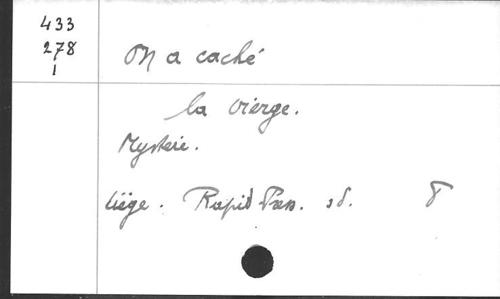 433
278
1
On a caché
la vierge.
Mystère.
Liège. Rapid Press. sd.